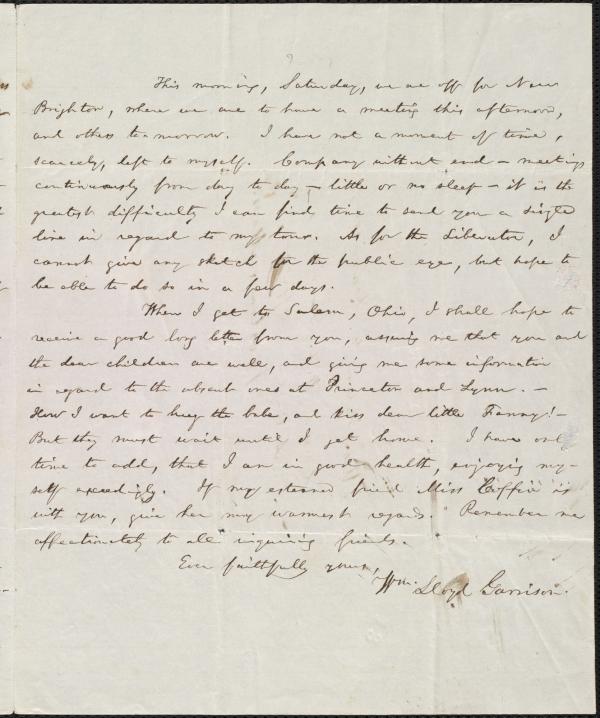 This morning, Saturday, we are off for New
Brighton, where we are to have a meeting this afternoon,
and others to-morrow. I have not a moment of time,
scarcely, left to myself. Company without end - meetings
continuously from day to day - little or no sleep - it is the
greatest difficulty I can find time to send you a single
line in regard to my tour. As for the Liberator, I
cannot give any sketch for the public eye, but hope to
be able to do so in a few days.
When I get to Salem, Ohio, I shall hope to
receive a good long letter from you, assuring me that you and
the dear children are well, and giving me some information
in regard to the absent ones at Princeton and Lynn. -
How I want to hug the babe, and kiss dear little Fanny! -
But they must wait until I get home. I have only
time to add, that I am in good health, enjoying my-
self exceedingly. If my esteemed friend Miss Coffin is
with you, give her my warmest regards. Remember me
affectionately to all inquiring friends.
Ever faithfully yours,
Wm. Lloyd Garrison.